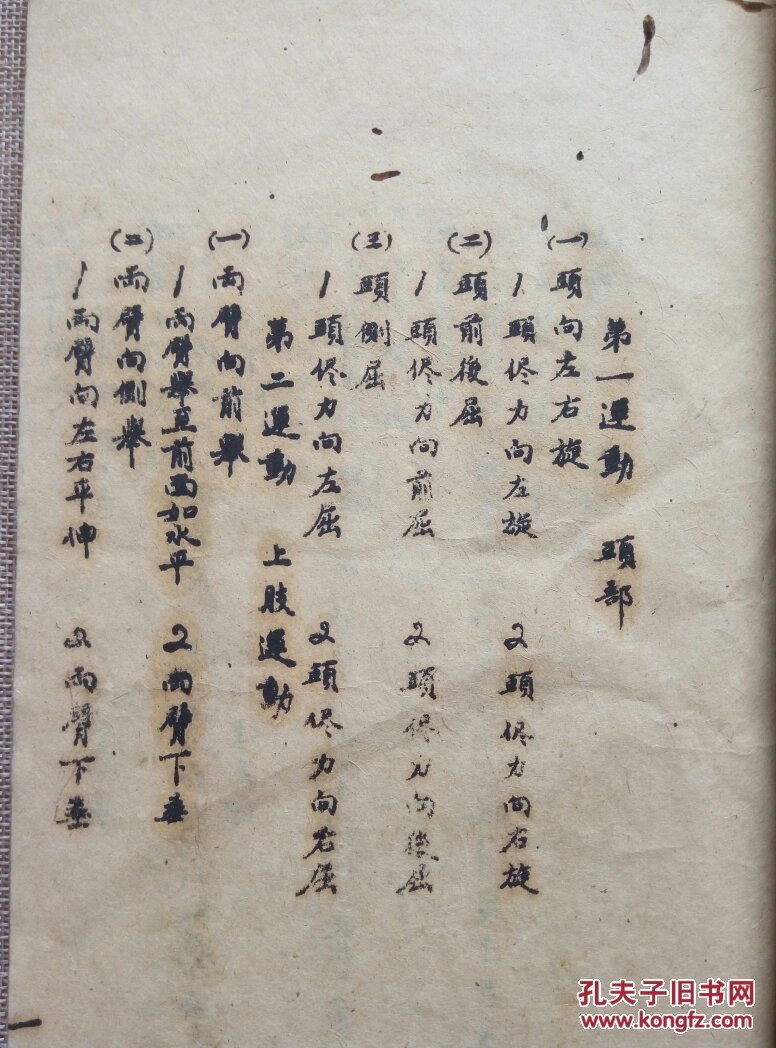 第一運動　頭部
(一)頭向左右旋
1頭侭力向左旋　2頭侭力向右旋
(二)頭前後屈
1頭侭力向前屈　2頭侭力向後屈
(三)頭側屈
1頭侭力向左屈　2頭侭力向右屈
第二運動　上肢運動
(一)兩臂向前舉
1兩臂舉至前面如水平　2兩臂下垂
(二)兩臂向側舉
1兩臂向左右平伸　2兩臂下垂
孔夫子旧书网
www.kongfz.com